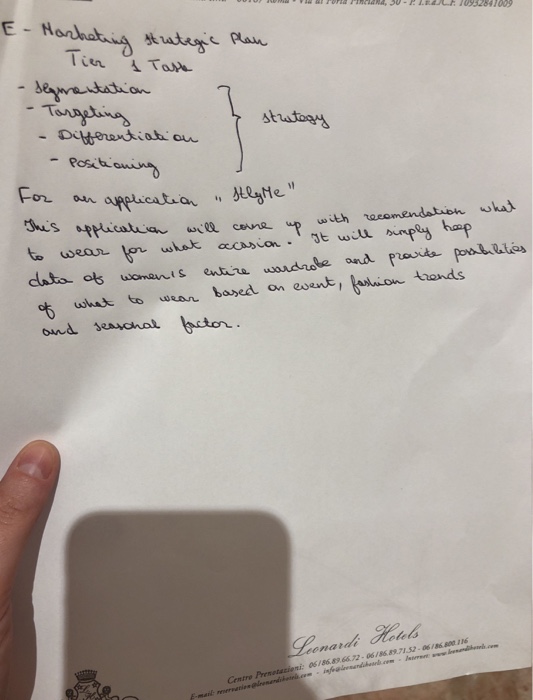 Via di Porta Pinciana, 30 - P. I. E R.C.F. 10932841009
E - Marketing strategic Plan
Tier 1 Task
- Segmentation
- Targeting
- Differentiation
- Positioning
strategy
For an application "StlyMe"
This application will come up with recomendation what
to wear for what accasion. It will simply keep
data of women's entire wardrobe and provide possibilities
of what to wear based on event, fashion trends
and seasonal factor.
Leonardi Hotels
Centro Prenotazioni: 06/86.89.66.72 - 06/86.89.71.52 - 06/86.800.116
E-mail: reservation@leonardihotels.com - info@leonardihotels.com - Internet: www.leonardihotels.com